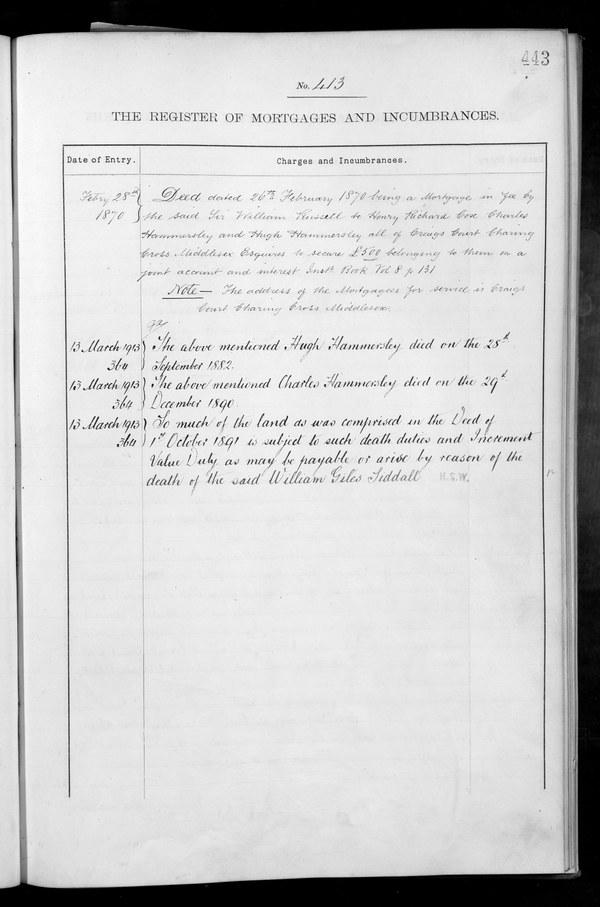 443
No. 413
THE REGISTER OF MORTGAGES AND INCUMBRANCES.
Date of Entry. Charges and Incumbrances.
Febry 28th Deed dated 26th February 1870 being a Mortgage in fee by
1870 the said Sir William Russell to Henry Richard Cox Charles
Hammersley and Hugh Hammersley all of Craigs Court Charing
Cross Middlesex Esquires to secure £500 belonging to them on a
joint account and interest Inst. Book Vol 8 p 131
Note— The address of the Mortgagees for service is Craigs
Court Charing Cross Middlesex.
13 March 1913 The above mentioned Hugh Hammersley died on the 28th
364 September 1882.
13 March 1913 The above mentioned Charles Hammersley died on the 29th
364 December 1890
13 March 1913 So much of the land as was comprised in the Deed of
364 1st October 1891 is subject to such death duties and Increment
Value Duty as may be payable or arise by reason of the
death of the said William Giles Siddall H.S.W.